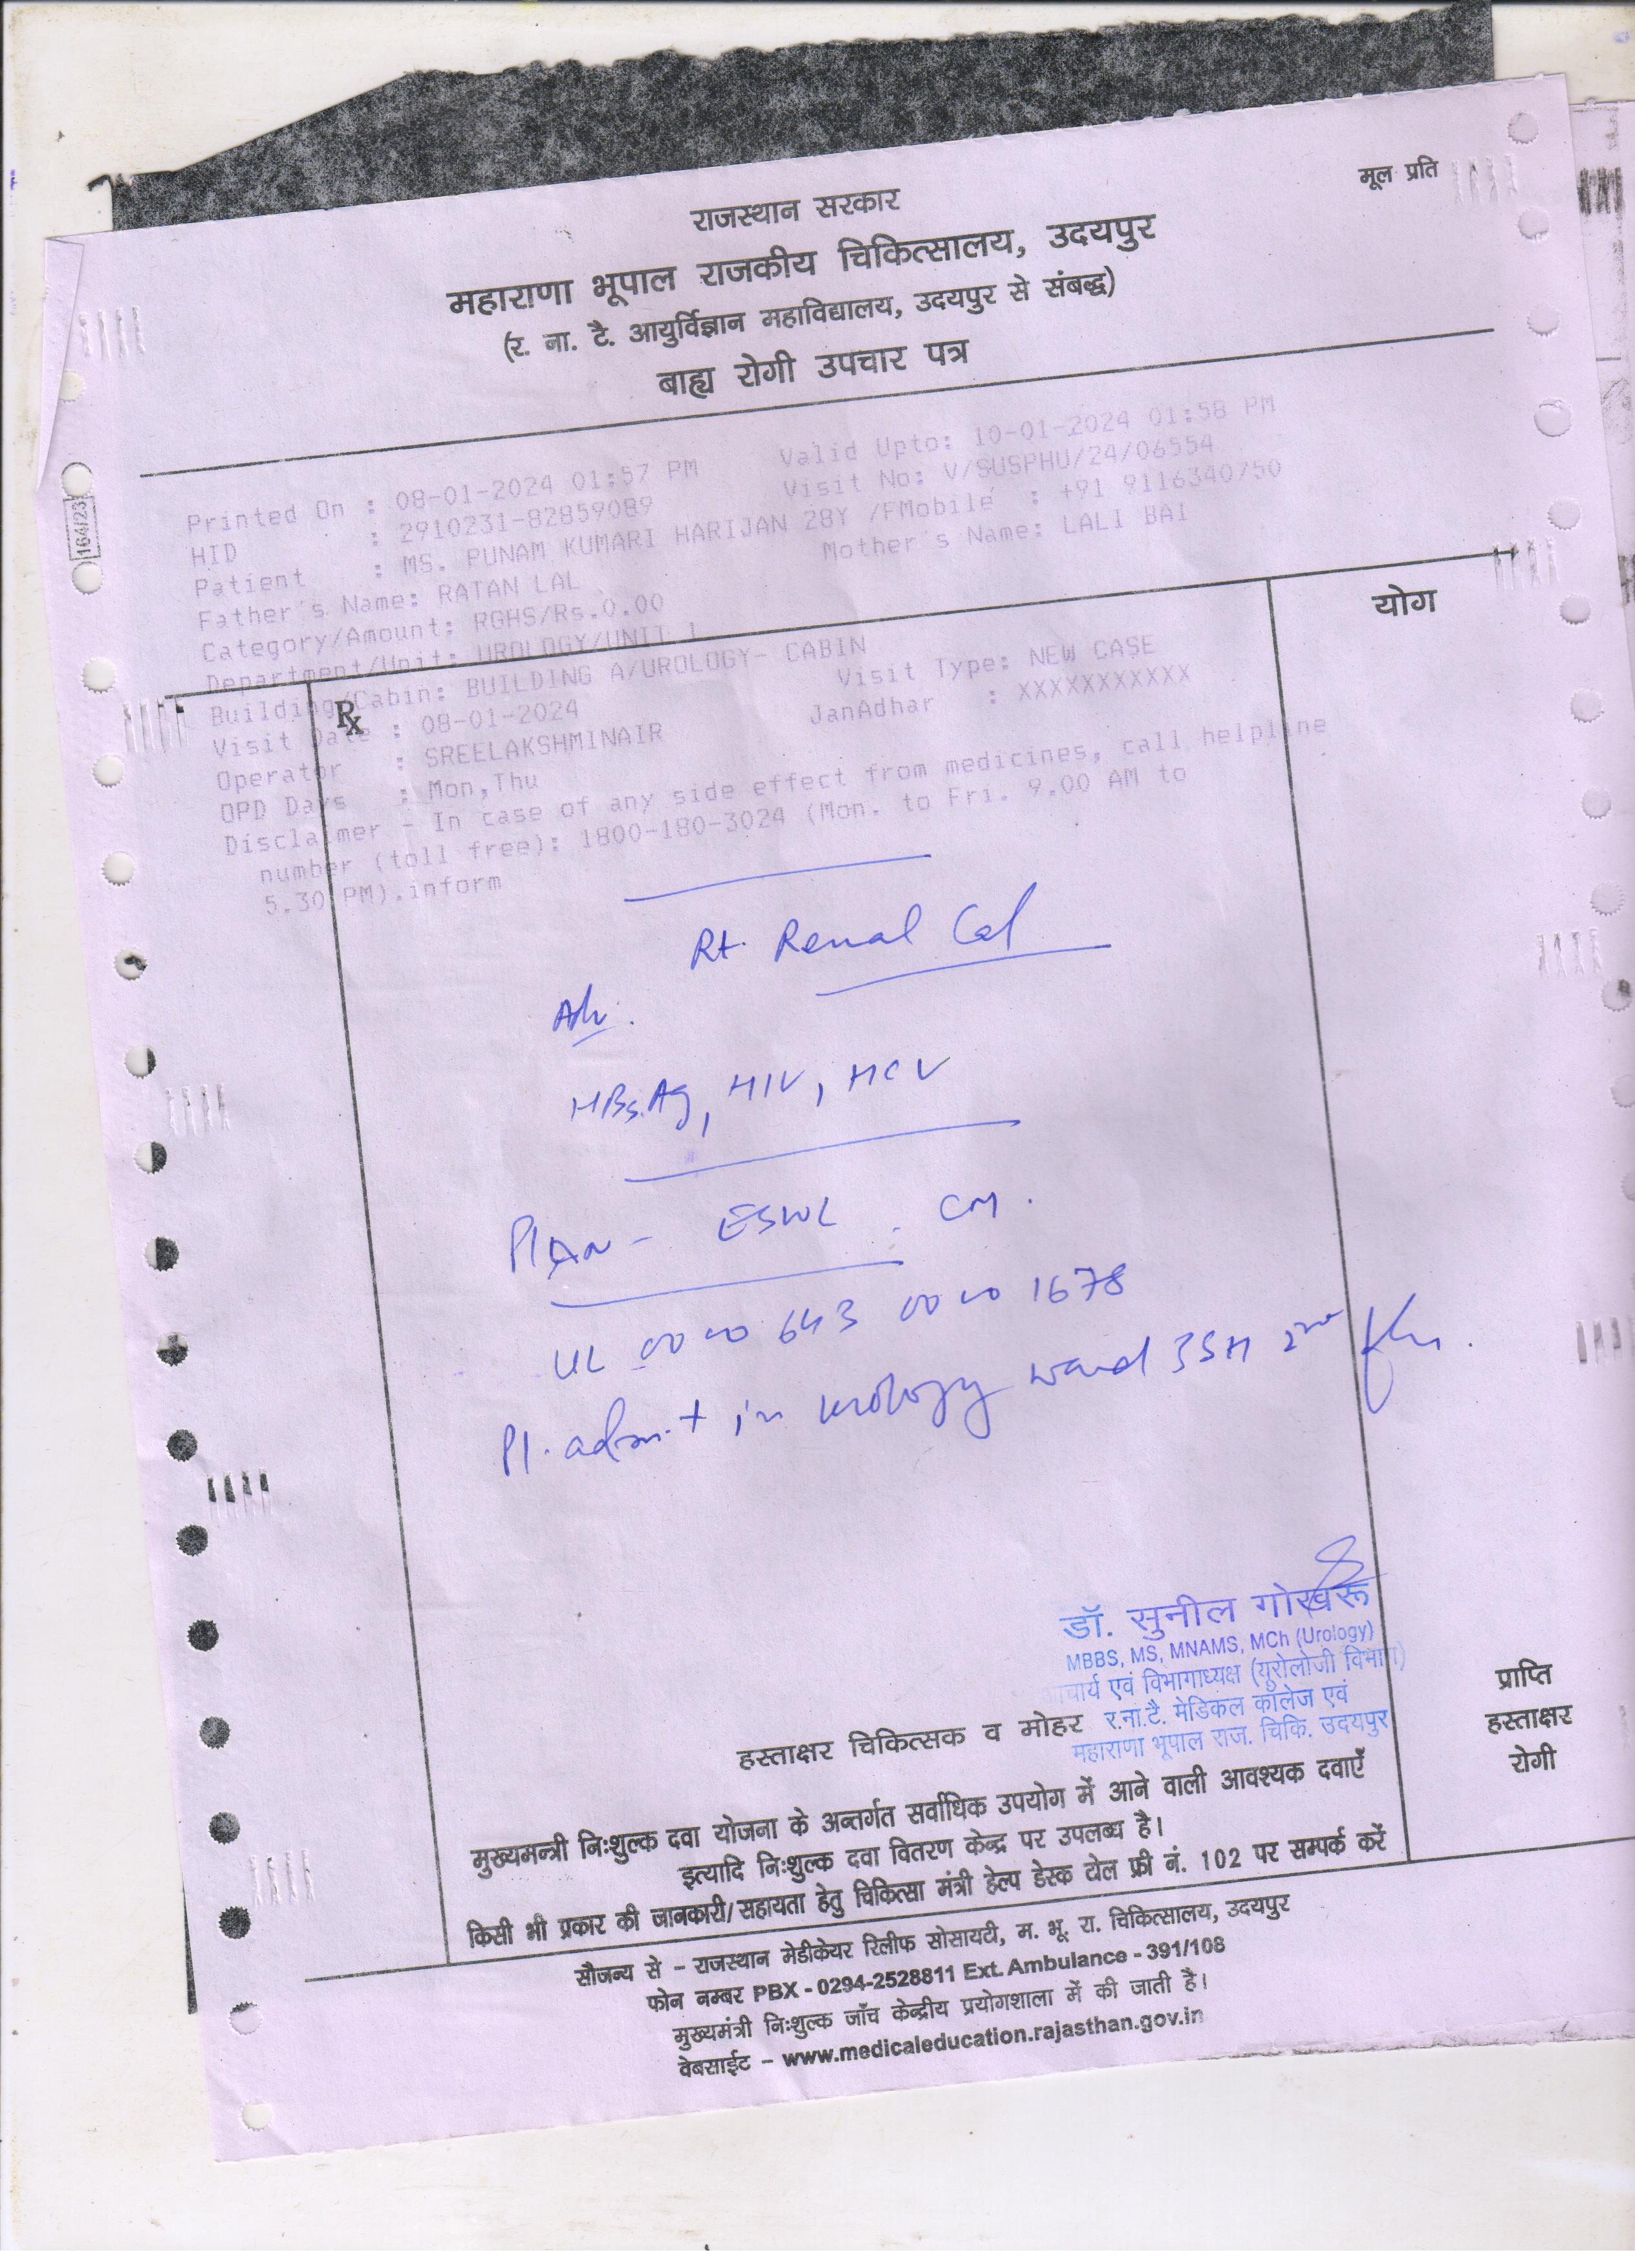 मूल प्रति
राजस्थान सरकार
महाराणा भूपाल राजकीय चिकित्सालय, उदयपुर
(र. ना. टै. आयुर्विज्ञान महाविद्यालय, उदयपुर से संबद्ध)
बाह्य रोगी उपचार पत्र
164/23
Printed On : 08-01-2024 01:57 PM Valid Upto: 10-01-2024 01:58 PM
HID : 2910231-82859089 Visit No: V/SUSPHU/24/06554
Patient : MS. PUNAM KUMARI HARIJAN 28Y /FMobile : +91 9116340750
Father's Name: RATAN LAL Mother's Name: LALI BAI
Category/Amount: RGHS/Rs.0.00
Department/Unit: UROLOGY/UNIT 1
Building/Cabin: BUILDING A/UROLOGY- CABIN
Visit Date : 08-01-2024 Visit Type: NEW CASE
Operator : SREELAKSHMINAIR JanAdhar : XXXXXXXXXXX
OPD Days : Mon,Thu
Disclaimer - In case of any side effect from medicines, call helpline
number (toll free): 1800-180-3024 (Mon. to Fri. 9.00 AM to
5.30 PM).inform
योग
℞
Rt. Renal Cal
Adv.
HBsAg, HIV, HCV
PLAN - ESWL . CM .
UL 00 00 643 00 00 1678
Pl. admit in urology ward SSH 2nd
डॉ. सुनील गोखरू
MBBS, MS, MNAMS, MCh (Urology)
आचार्य एवं विभागाध्यक्ष (यूरोलोजी विभाग)
र.ना.टै. मेडिकल कॉलेज एवं
महाराणा भूपाल राज. चिकि. उदयपुर
हस्ताक्षर चिकित्सक व मोहर
प्राप्ति
हस्ताक्षर
रोगी
मुख्यमन्त्री निःशुल्क दवा योजना के अन्तर्गत सर्वाधिक उपयोग में आने वाली आवश्यक दवाएँ
इत्यादि निःशुल्क दवा वितरण केन्द्र पर उपलब्ध है।
किसी भी प्रकार की जानकारी/सहायता हेतु चिकित्सा मंत्री हेल्प डेस्क टोल फ्री नं. 102 पर सम्पर्क करें
सौजन्य से - राजस्थान मेडीकेयर रिलीफ सोसायटी, म. भू. रा. चिकित्सालय, उदयपुर
फोन नम्बर PBX - 0294-2528811 Ext. Ambulance - 391/108
मुख्यमंत्री निःशुल्क जाँच केन्द्रीय प्रयोगशाला में की जाती है।
वेबसाईट - www.medicaleducation.rajasthan.gov.in